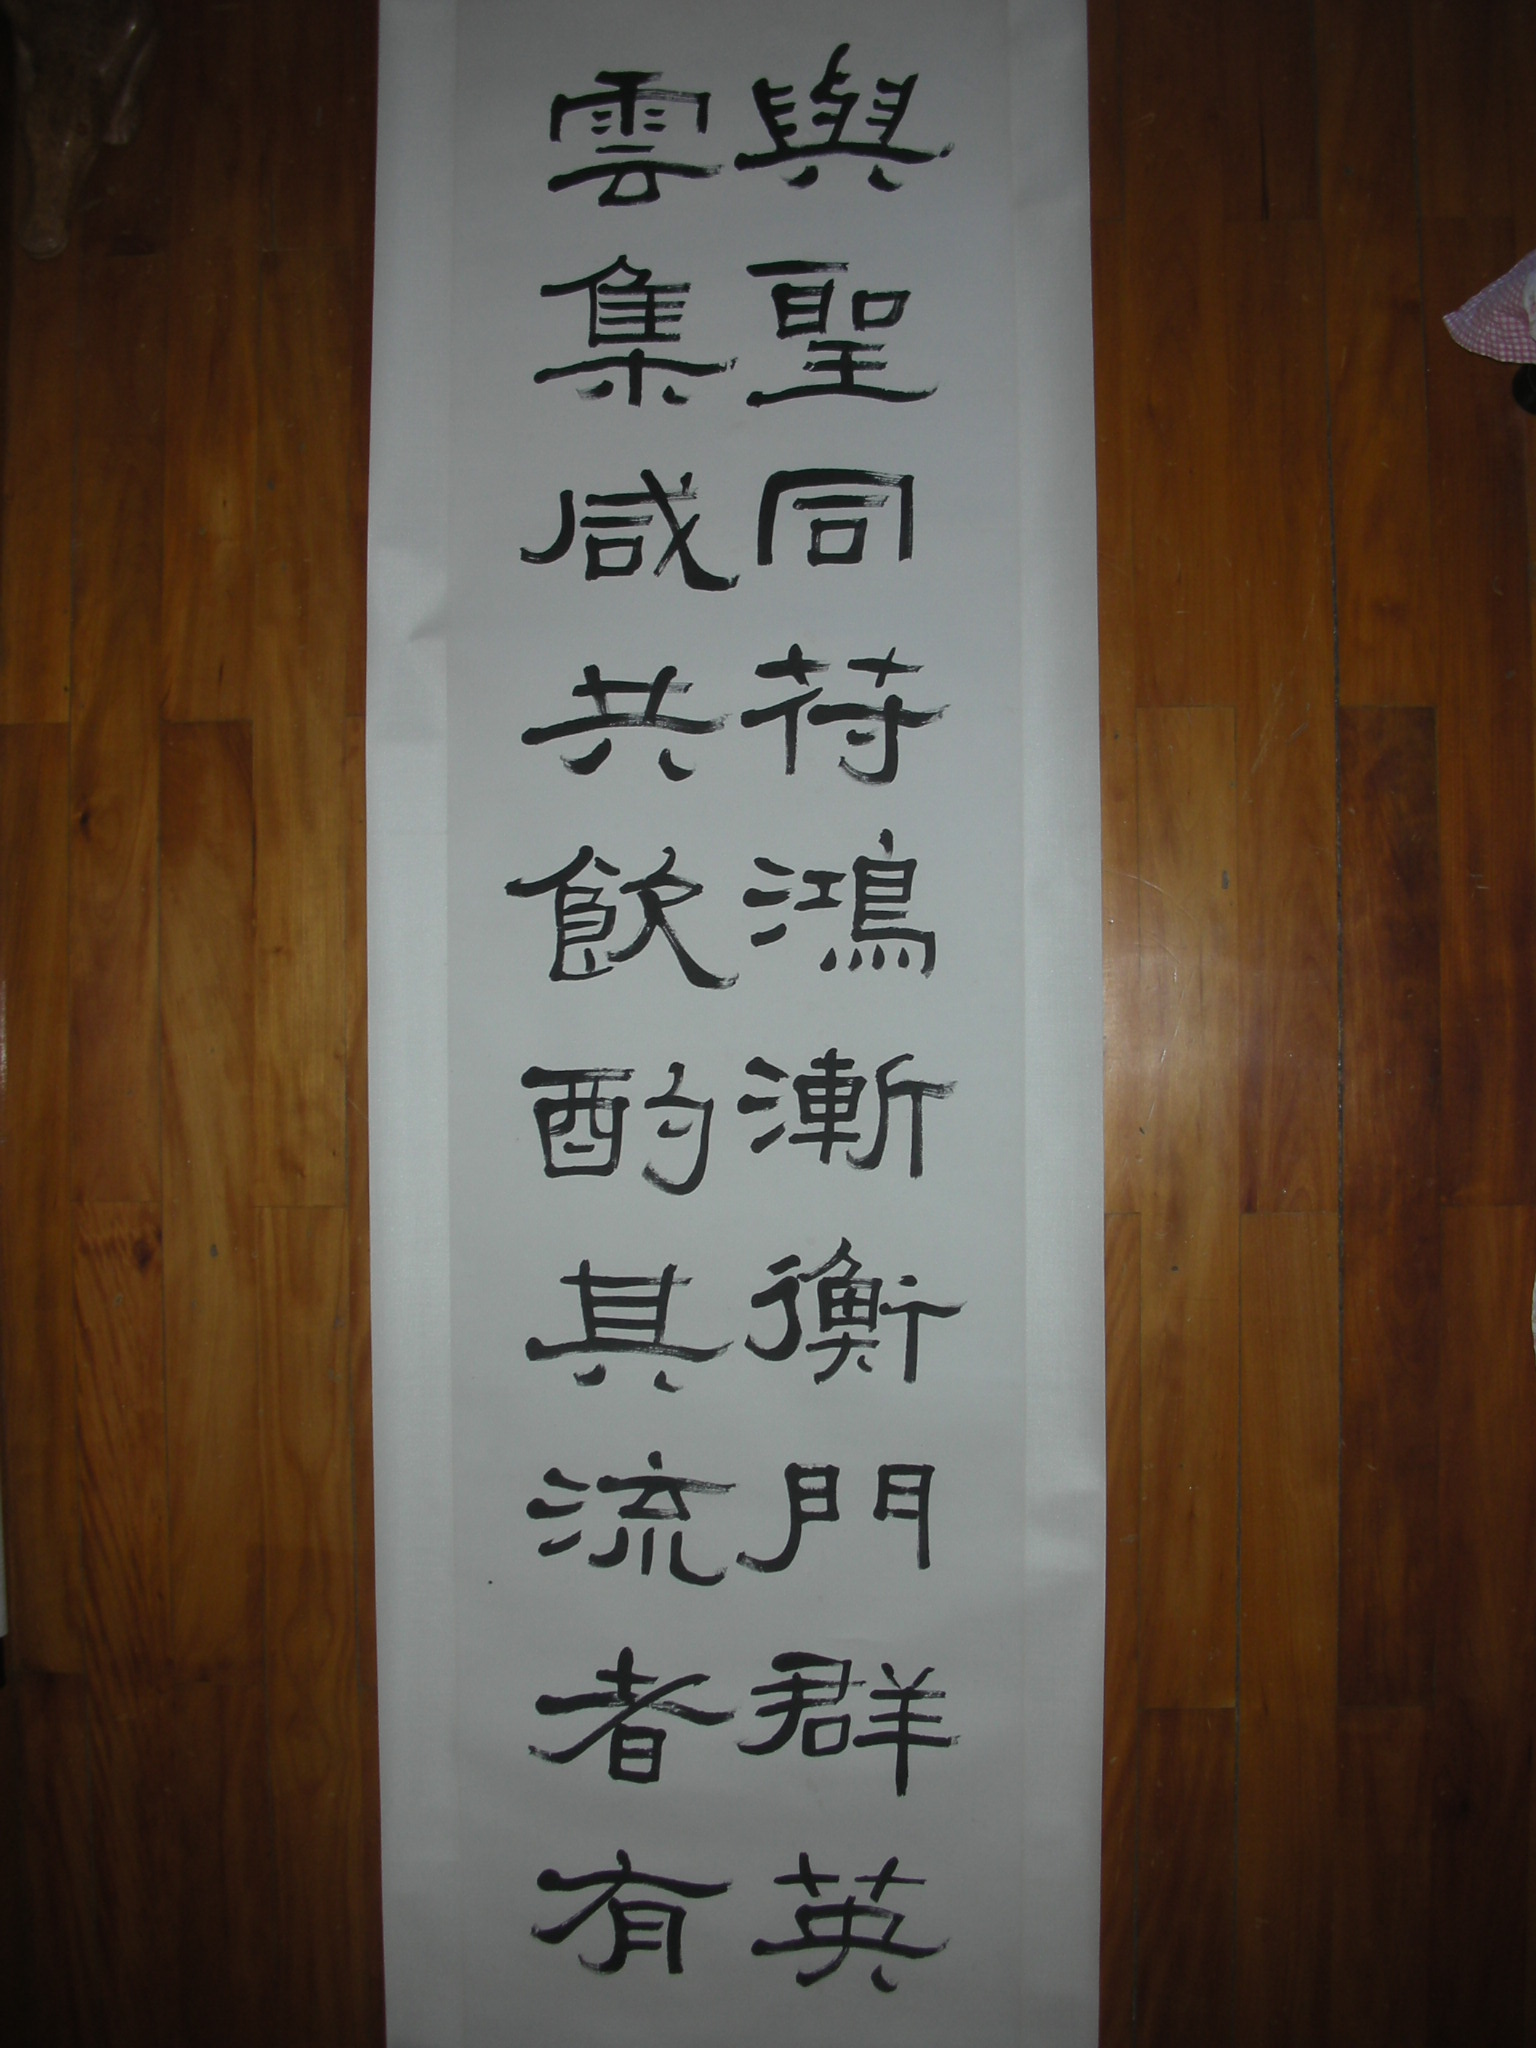 與聖同苻鴻漸衡門群英
雲集咸共飲酌其流者有